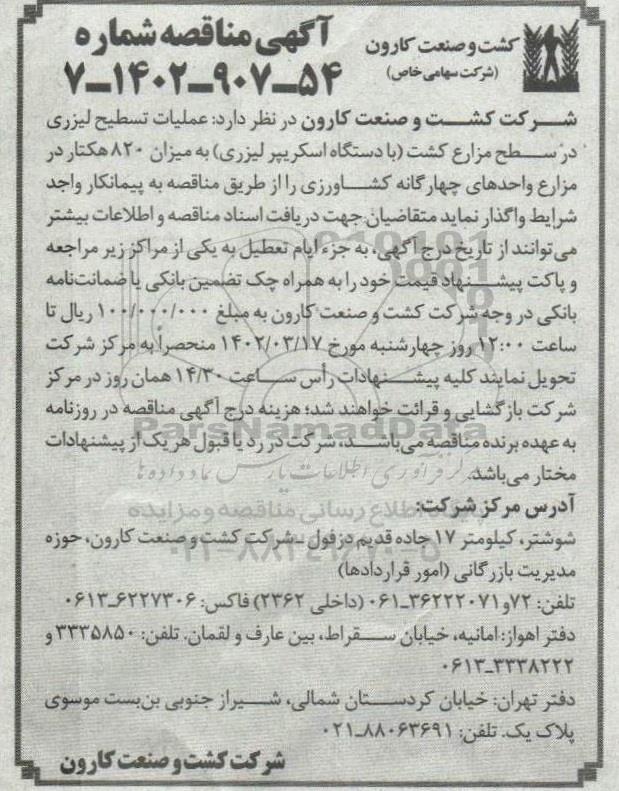 آگهی مناقصه شماره
۵۴-۹۰۷-۱۴۰۲-۷
کشت و صنعت کارون
(شرکت سهامی خاص)
شرکت کشت و صنعت کارون در نظر دارد: عملیات تسطیح لیزری
در سطح مزارع کشت (با دستگاه اسکریپر لیزری) به میزان ۸۲۰ هکتار در
مزارع واحدهای چهارگانه کشاورزی را از طریق مناقصه به پیمانکار واجد
شرایط واگذار نماید متقاضیان جهت دریافت اسناد مناقصه و اطلاعات بیشتر
می‌توانند از تاریخ درج آگهی، به جزء ایام تعطیل به یکی از مراکز زیر مراجعه
و پاکت پیشنهاد قیمت خود را به همراه چک تضمین بانکی یا ضمانت‌نامه
بانکی در وجه شرکت کشت و صنعت کارون به مبلغ ۱۰۰/۰۰۰/۰۰۰ ریال تا
ساعت ۱۲:۰۰ روز چهارشنبه مورخ ۱۴۰۲/۰۳/۱۷ منحصراً به مرکز شرکت
تحویل نمایند کلیه پیشنهادات رأس ساعت ۱۴/۳۰ همان روز در مرکز
شرکت بازگشایی و قرائت خواهند شد؛ هزینه درج آگهی مناقصه در روزنامه
به عهده برنده مناقصه می‌باشد، شرکت در رد یا قبول هر یک از پیشنهادات
مختار می‌باشد.
آدرس مرکز شرکت:
شوشتر، کیلومتر ۱۷ جاده قدیم دزفول - شرکت کشت و صنعت کارون، حوزه
مدیریت بازرگانی (امور قراردادها)
تلفن: ۷۲ و ۳۶۲۲۲۰۷۱-۰۶۱ (داخلی ۲۳۶۲) فاکس: ۶۲۲۷۳۰۶-۰۶۱۳
دفتر اهواز: امانیه، خیابان سقراط، بین عارف و لقمان. تلفن: ۳۳۳۵۸۵۰ و
۳۳۳۸۲۲۲-۰۶۱۳
دفتر تهران: خیابان کردستان شمالی، شیراز جنوبی بن‌بست موسوی
پلاک یک. تلفن: ۸۸۰۶۳۶۹۱-۰۲۱
شرکت کشت و صنعت کارون
ParsNamadData
مرکز فرآوری اطلاعات پارس نماد داده ها
پایگاه اطلاع رسانی مناقصه و مزایده